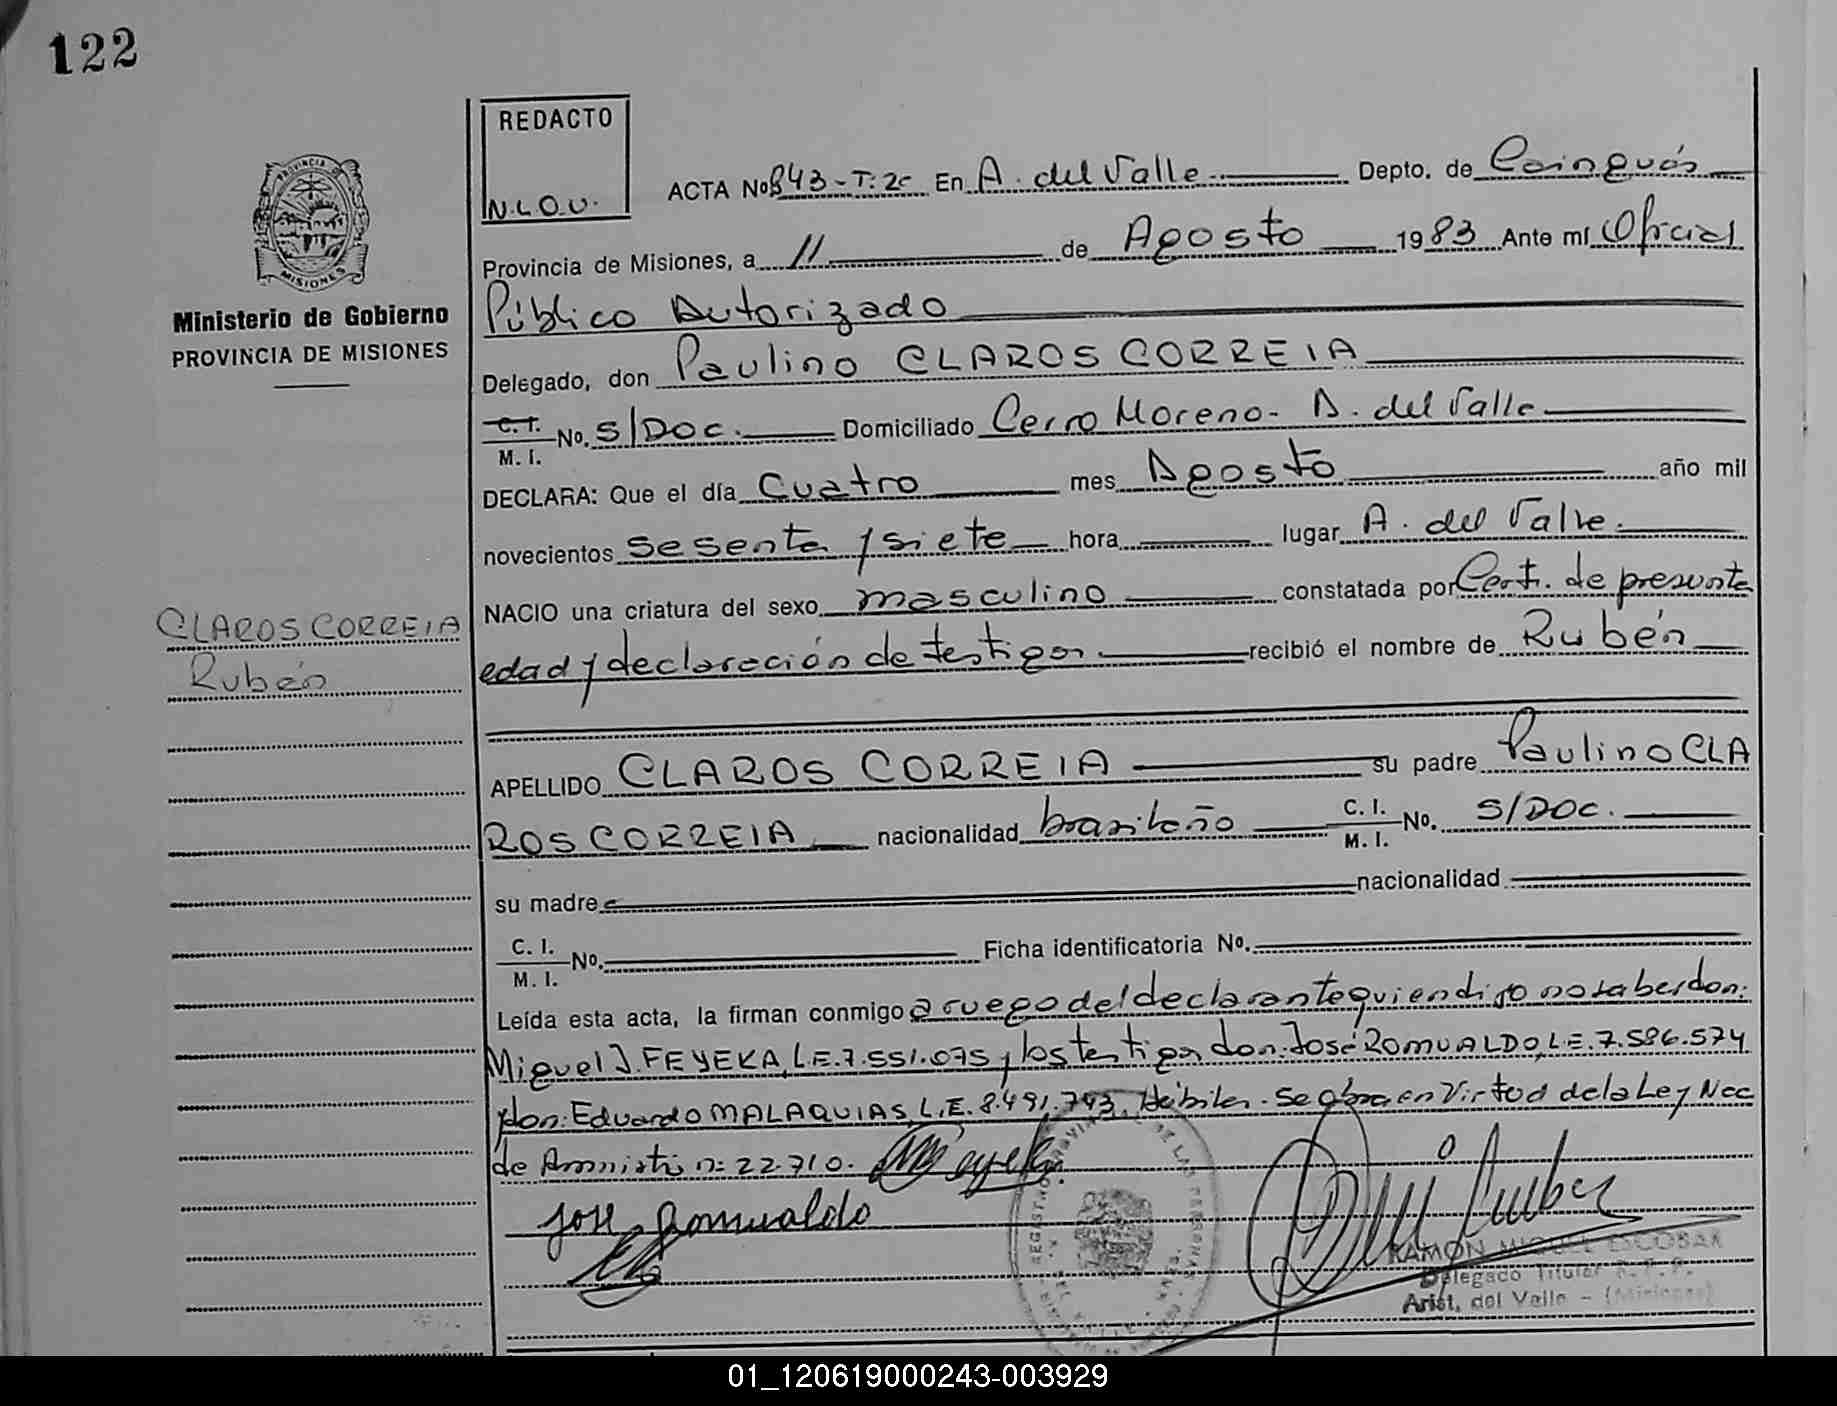 122
REDACTO
N.L.O.U.
ACTA No 843-T:2º En A. del Valle Depto. de Cainguás
Provincia de Misiones, a 11 de Agosto 1983 Ante mí Oficial
Público Autorizado
Ministerio de Gobierno
PROVINCIA DE MISIONES
Delegado, don Paulino CLAROS CORREIA
C. I. M. I. No. S/DOC. Domiciliado Cerro Moreno - A. del Valle
DECLARA: Que el día Cuatro mes Agosto año mil
novecientos sesenta y siete hora lugar A. del Valle.
NACIO una criatura del sexo masculino constatada por Cert. de presunta
CLAROS CORREIA
Rubén
edad y declaración de testigos. recibió el nombre de Rubén
APELLIDO CLAROS CORREIA su padre Paulino CLA
ROS CORREIA nacionalidad brasileño C. I. M. I. No. S/DOC.
su madre nacionalidad
C. I. M. I. No. Ficha identificatoria No.
Leída esta acta, la firman conmigo a ruego del declarante quien dijo no saber don:
Miguel J. FEYEKA, L.E. 7.551.075 y los testigos don: José ROMUALDO, L.E. 7.586.574
y don: Eduardo MALAQUIAS, L.E. 8.491.793. Hábiles. Se labra en Virtud de la Ley Nac
de Amnistí n: 22.710.
Jose Romualdo
RAMON MIGUEL ESCOBAR
Delegado Titular R.P.P.
Arist. del Valle - (Misiones)
01_120619000243-003929